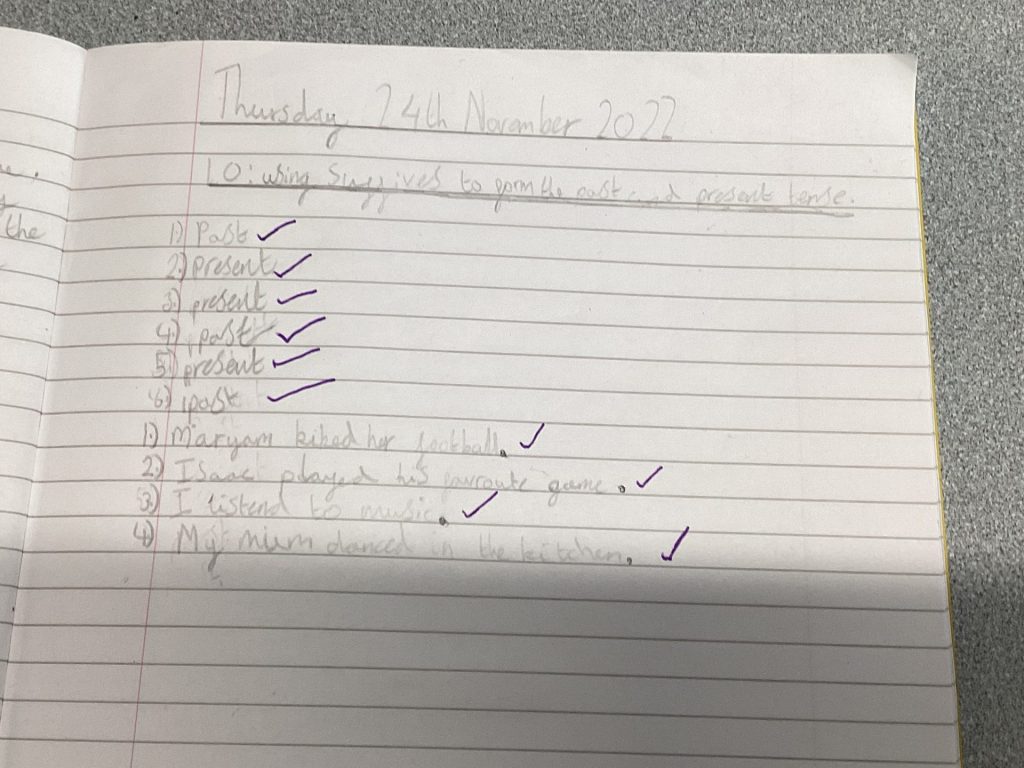 the
Thursday 24th November 2022
LO: using Suffixes to form the past and present tense.
1) Past
2) present
3) present
4) past
5) present
6) past
1) Maryam kiked her football.
2) Isaac played his favroute game.
3) I listend to music.
4) My mum danced in the kitchen.